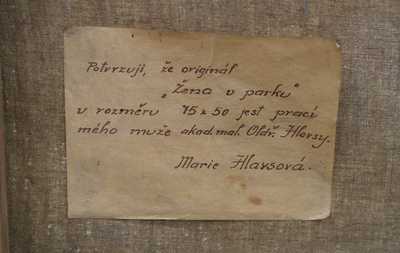 Potvrzuji, že originál
„Žena v parku"
v rozměru 75 x 50 jest prací
mého muže akad. mal. Oldř. Hlavsy.
Marie Hlavsová.